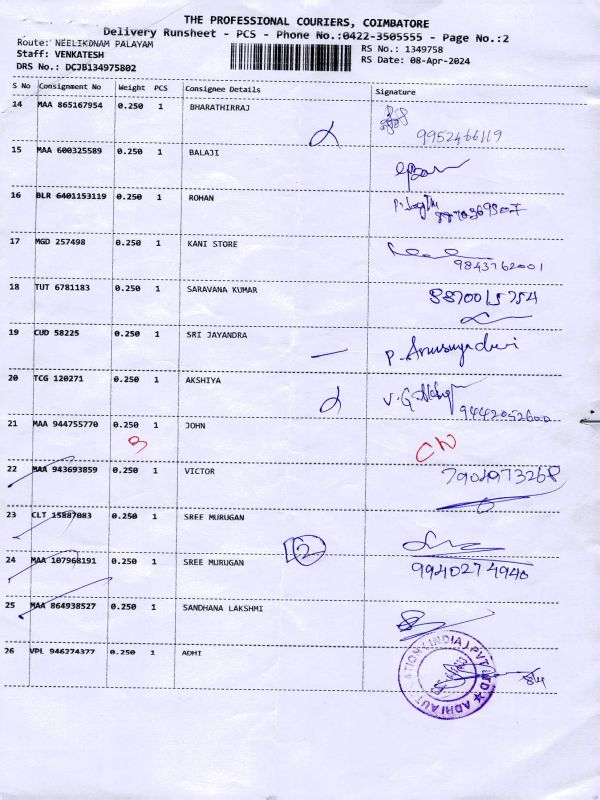 THE PROFESSIONAL COURIERS, COIMBATORE
Delivery Runsheet - PCS - Phone No.:0422-3505555 - Page No.:2
Route: NEELIKONAM PALAYAM
RS No.: 1349758
Staff: VENKATESH
RS Date: 08-Apr-2024
DRS No.: DCJB134975802
S No Consignment No Weight PCS Consignee Details Signature
14 MAA 865167954 0.250 1 BHARATHIRRAJ
9952466119
15 MAA 600325589 0.250 1 BALAJI
16 BLR 6401153119 0.250 1 ROHAN
17 MGD 257498 0.250 1 KANI STORE
9843762001
18 TUT 6781183 0.250 1 SARAVANA KUMAR
8870015754
19 CUD 58225 0.250 1 SRI JAYANDRA
P. Anusuyadevi
20 TCG 120271 0.250 1 AKSHIYA
9442052600
21 MAA 944755770 0.250 1 JOHN
3 CN
22 MAA 943693859 0.250 1 VICTOR
7904973268
23 CLT 15887083 0.250 1 SREE MURUGAN
24 MAA 107968191 0.250 1 SREE MURUGAN
2
9940274940
25 MAA 864938527 0.250 1 SANDHANA LAKSHMI
26 VPL 946274377 0.250 1 ADHI
ADHI AUTOMATION (INDIA) PVT LTD